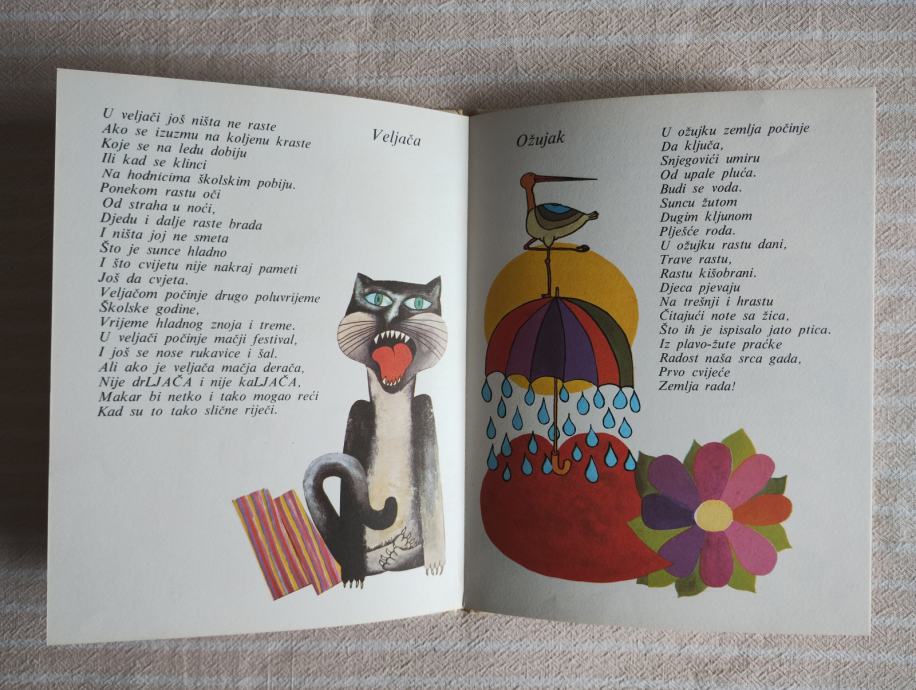 Veljača
U veljači još ništa ne raste
Ako se izuzmu na koljenu kraste
Koje se na ledu dobiju
Ili kad se klinci
Na hodnicima školskim pobiju.
Ponekom rastu oči
Od straha u noći,
Djedu i dalje raste brada
I ništa joj ne smeta
Što je sunce hladno
I što cvijetu nije nakraj pameti
Još da cvjeta.
Veljačom počinje drugo poluvrijeme
Školske godine,
Vrijeme hladnog znoja i treme.
U veljači počinje mačji festival,
I još se nose rukavice i šal.
Ali ako je veljača mačja derača,
Nije drLJAČA i nije kaLJAČA,
Makar bi netko i tako mogao reći
Kad su to tako slične riječi.
Ožujak
U ožujku zemlja počinje
Da ključa,
Snjegovići umiru
Od upale pluća.
Budi se voda.
Suncu žutom
Dugim kljunom
Plješće roda.
U ožujku rastu dani,
Trave rastu,
Rastu kišobrani.
Djeca pjevaju
Na trešnji i hrastu
Čitajući note sa žica,
Što ih je ispisalo jato ptica.
Iz plavo-žute praćke
Radost naša srca gađa,
Prvo cvijeće
Zemlja rađa!